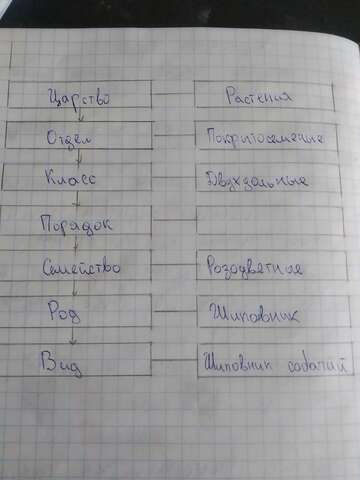 Царство Растения
Отдел Покрытосеменые
Класс Двухдольные
Порядок
Семейство Розоцветное
Род Шиповник
Вид Шиповник собачий